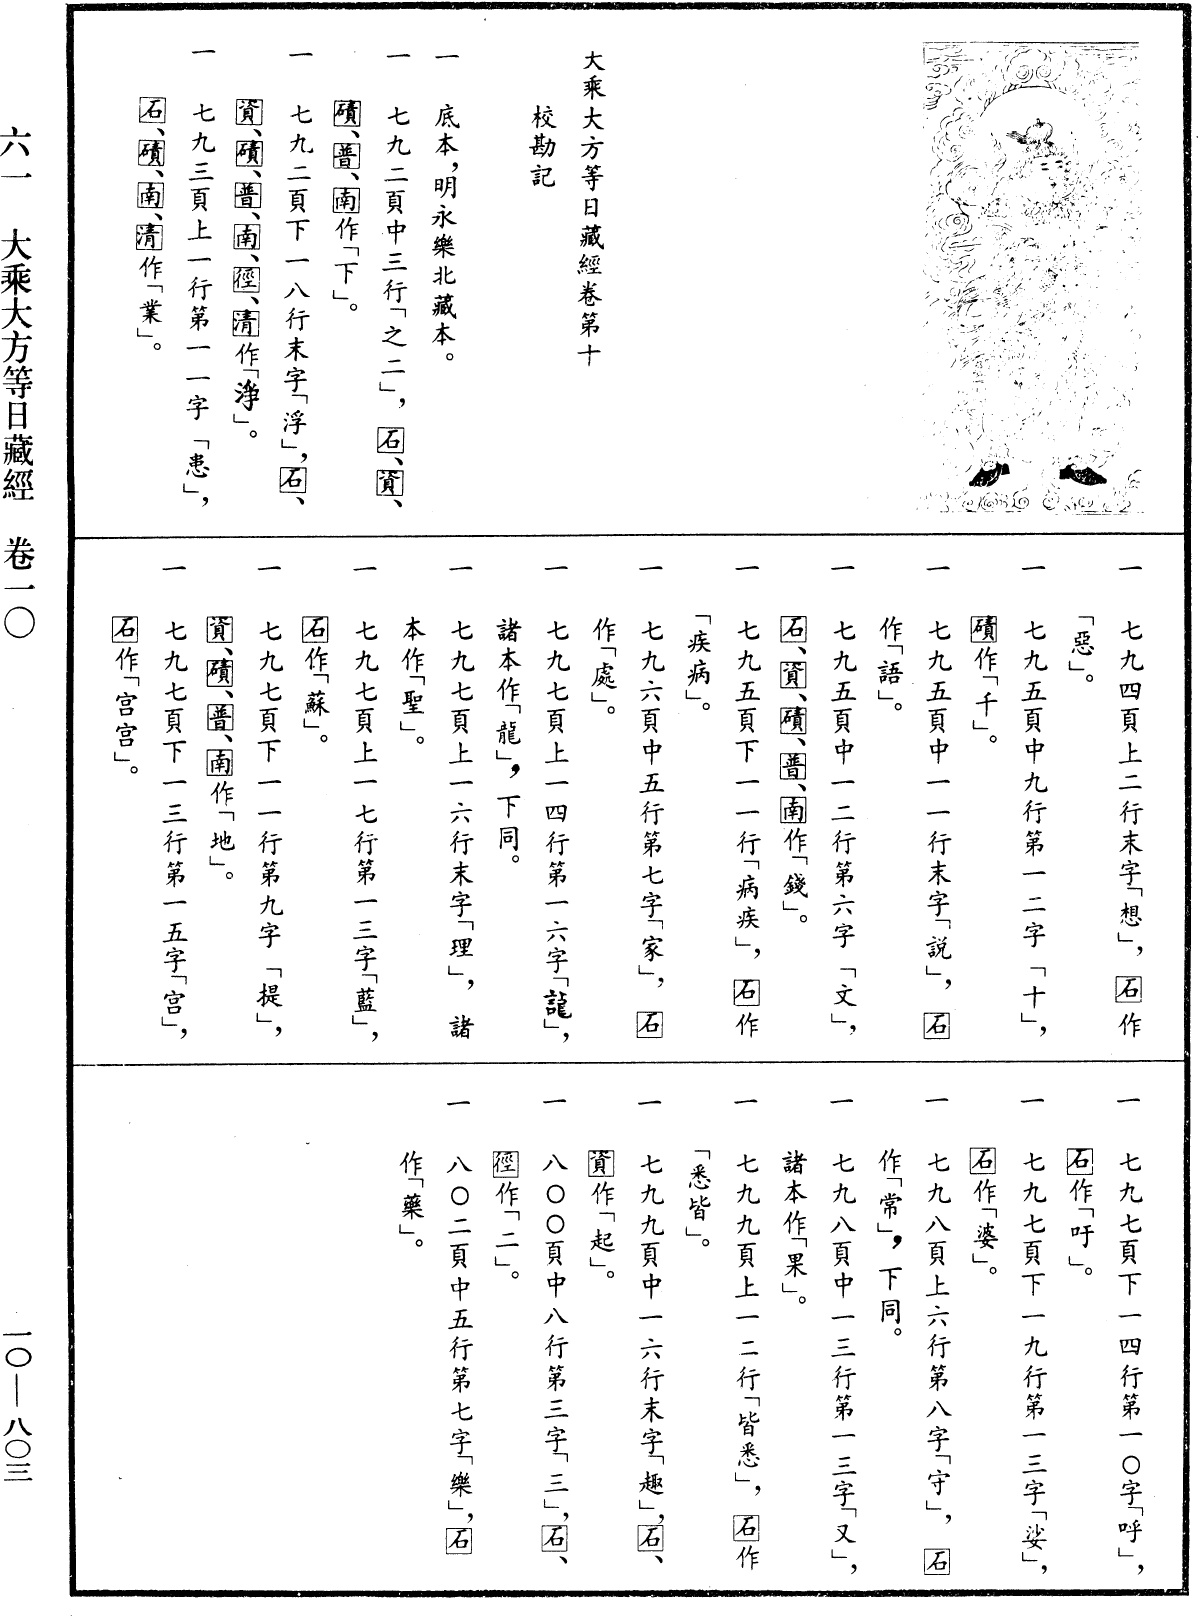 大乘大方等日藏經卷第十
校勘記
一　底本,明永樂北藏本。
一　七九二頁中三行「之二」,石、資、
磧、普、南作「下」。
一　七九二頁下一八行末字「浮」,石、
資、磧、普、南、徑、清作「淨」。
一　七九三頁上一行第一一字「恚」,
石、磧、南、清作「業」。
一　七九四頁上二行末字「想」,石作
「惡」。
一　七九五頁中九行第一二字「十」,
磧作「千」。
一　七九五頁中一一行末字「説」,石
作「語」。
一　七九五頁中一二行第六字「文」,
石、資、磧、普、南作「錢」。
一　七九五頁下一一行「病疾」,石作
「疾病」。
一　七九六頁中五行第七字「家」,石
作「處」。
一　七九七頁上一四行第一六字「龍」,
諸本作「龍」,下同。
一　七九七頁上一六行末字「理」,諸
本作「聖」。
一　七九七頁上一七行第一三字「藍」,
石作「蘇」。
一　七九七頁下一一行第九字「提」,
資、磧、普、南作「地」。
一　七九七頁下一三行第一五字「宫」,
石作「宫宫」。
一　七九七頁下一四行第一〇字「呼」,
石作「吁」。
一　七九七頁下一九行第一三字「娑」,
石作「婆」。
一　七九八頁上六行第八字「守」,石
作「常」,下同。
一　七九八頁中一三行第一三字「又」,
諸本作「果」。
一　七九九頁上一二行「皆悉」,石作
「悉皆」。
一　七九九頁中一六行末字「趣」,石、
資作「起」。
一　八〇〇頁中八行第三字「三」,石、
徑作「二」。
一　八〇二頁中五行第七字「樂」,石
作「藥」。
六一　大乘大方等日藏經　卷一〇
一〇—八〇三